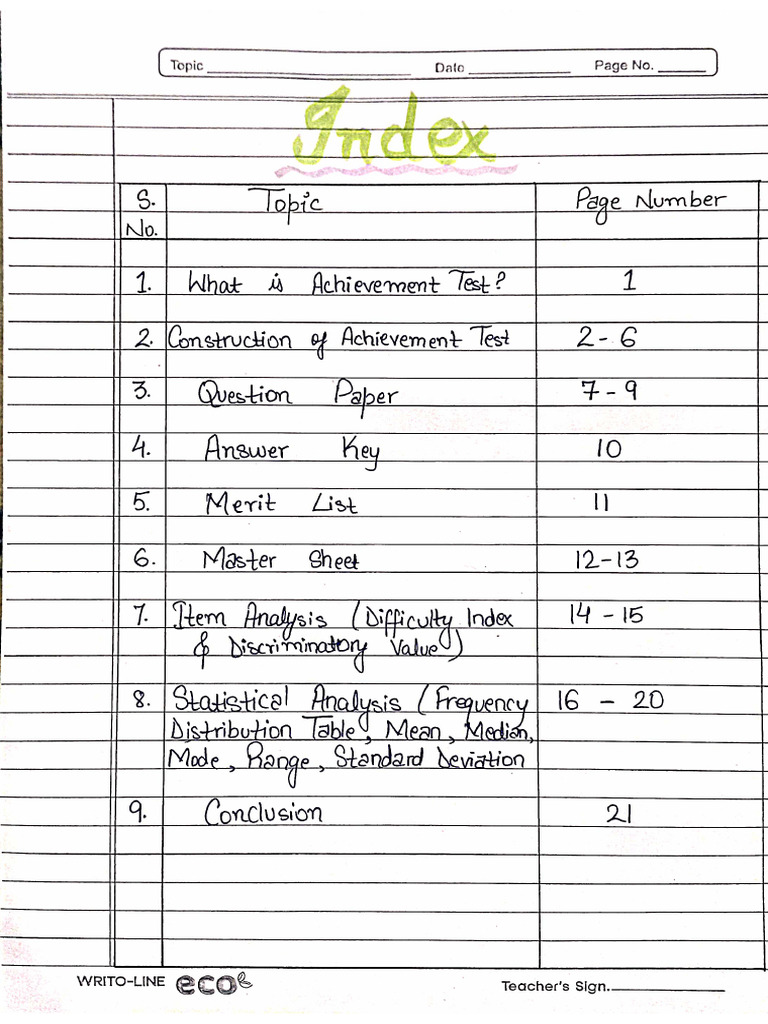 Topic Date Page No.
Index
S. Topic Page Number
No.
1. What is Achievement Test? 1
2. Construction of Achievement Test 2-6
3. Question Paper 7-9
4. Answer Key 10
5. Merit List 11
6. Master Sheet 12-13
7. Item Analysis (Difficulty Index 14-15
& Discriminatory Value)
8. Statistical Analysis (Frequency 16 - 20
Distribution Table, Mean, Median,
Mode, Range, Standard Deviation
9. Conclusion 21
WRITO-LINE eco Teacher's Sign.